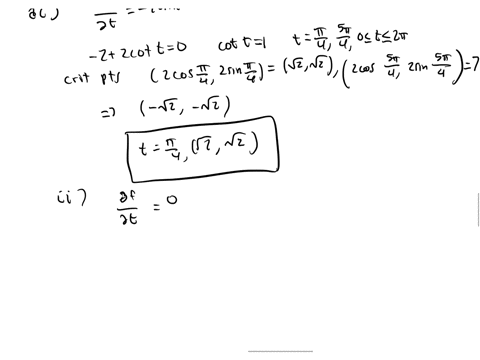 ∂t
-2+2cot t=0 cot t=1 t=π/4, 5π/4, 0≤t≤2π
crit pts (2cos π/4, 2sin π/4) = (√2, √2), (2cos 5π/4, 2sin 5π/4) =>
=> (-√2, -√2)
t=π/4, (√2, √2)
ii) ∂f/∂t = 0